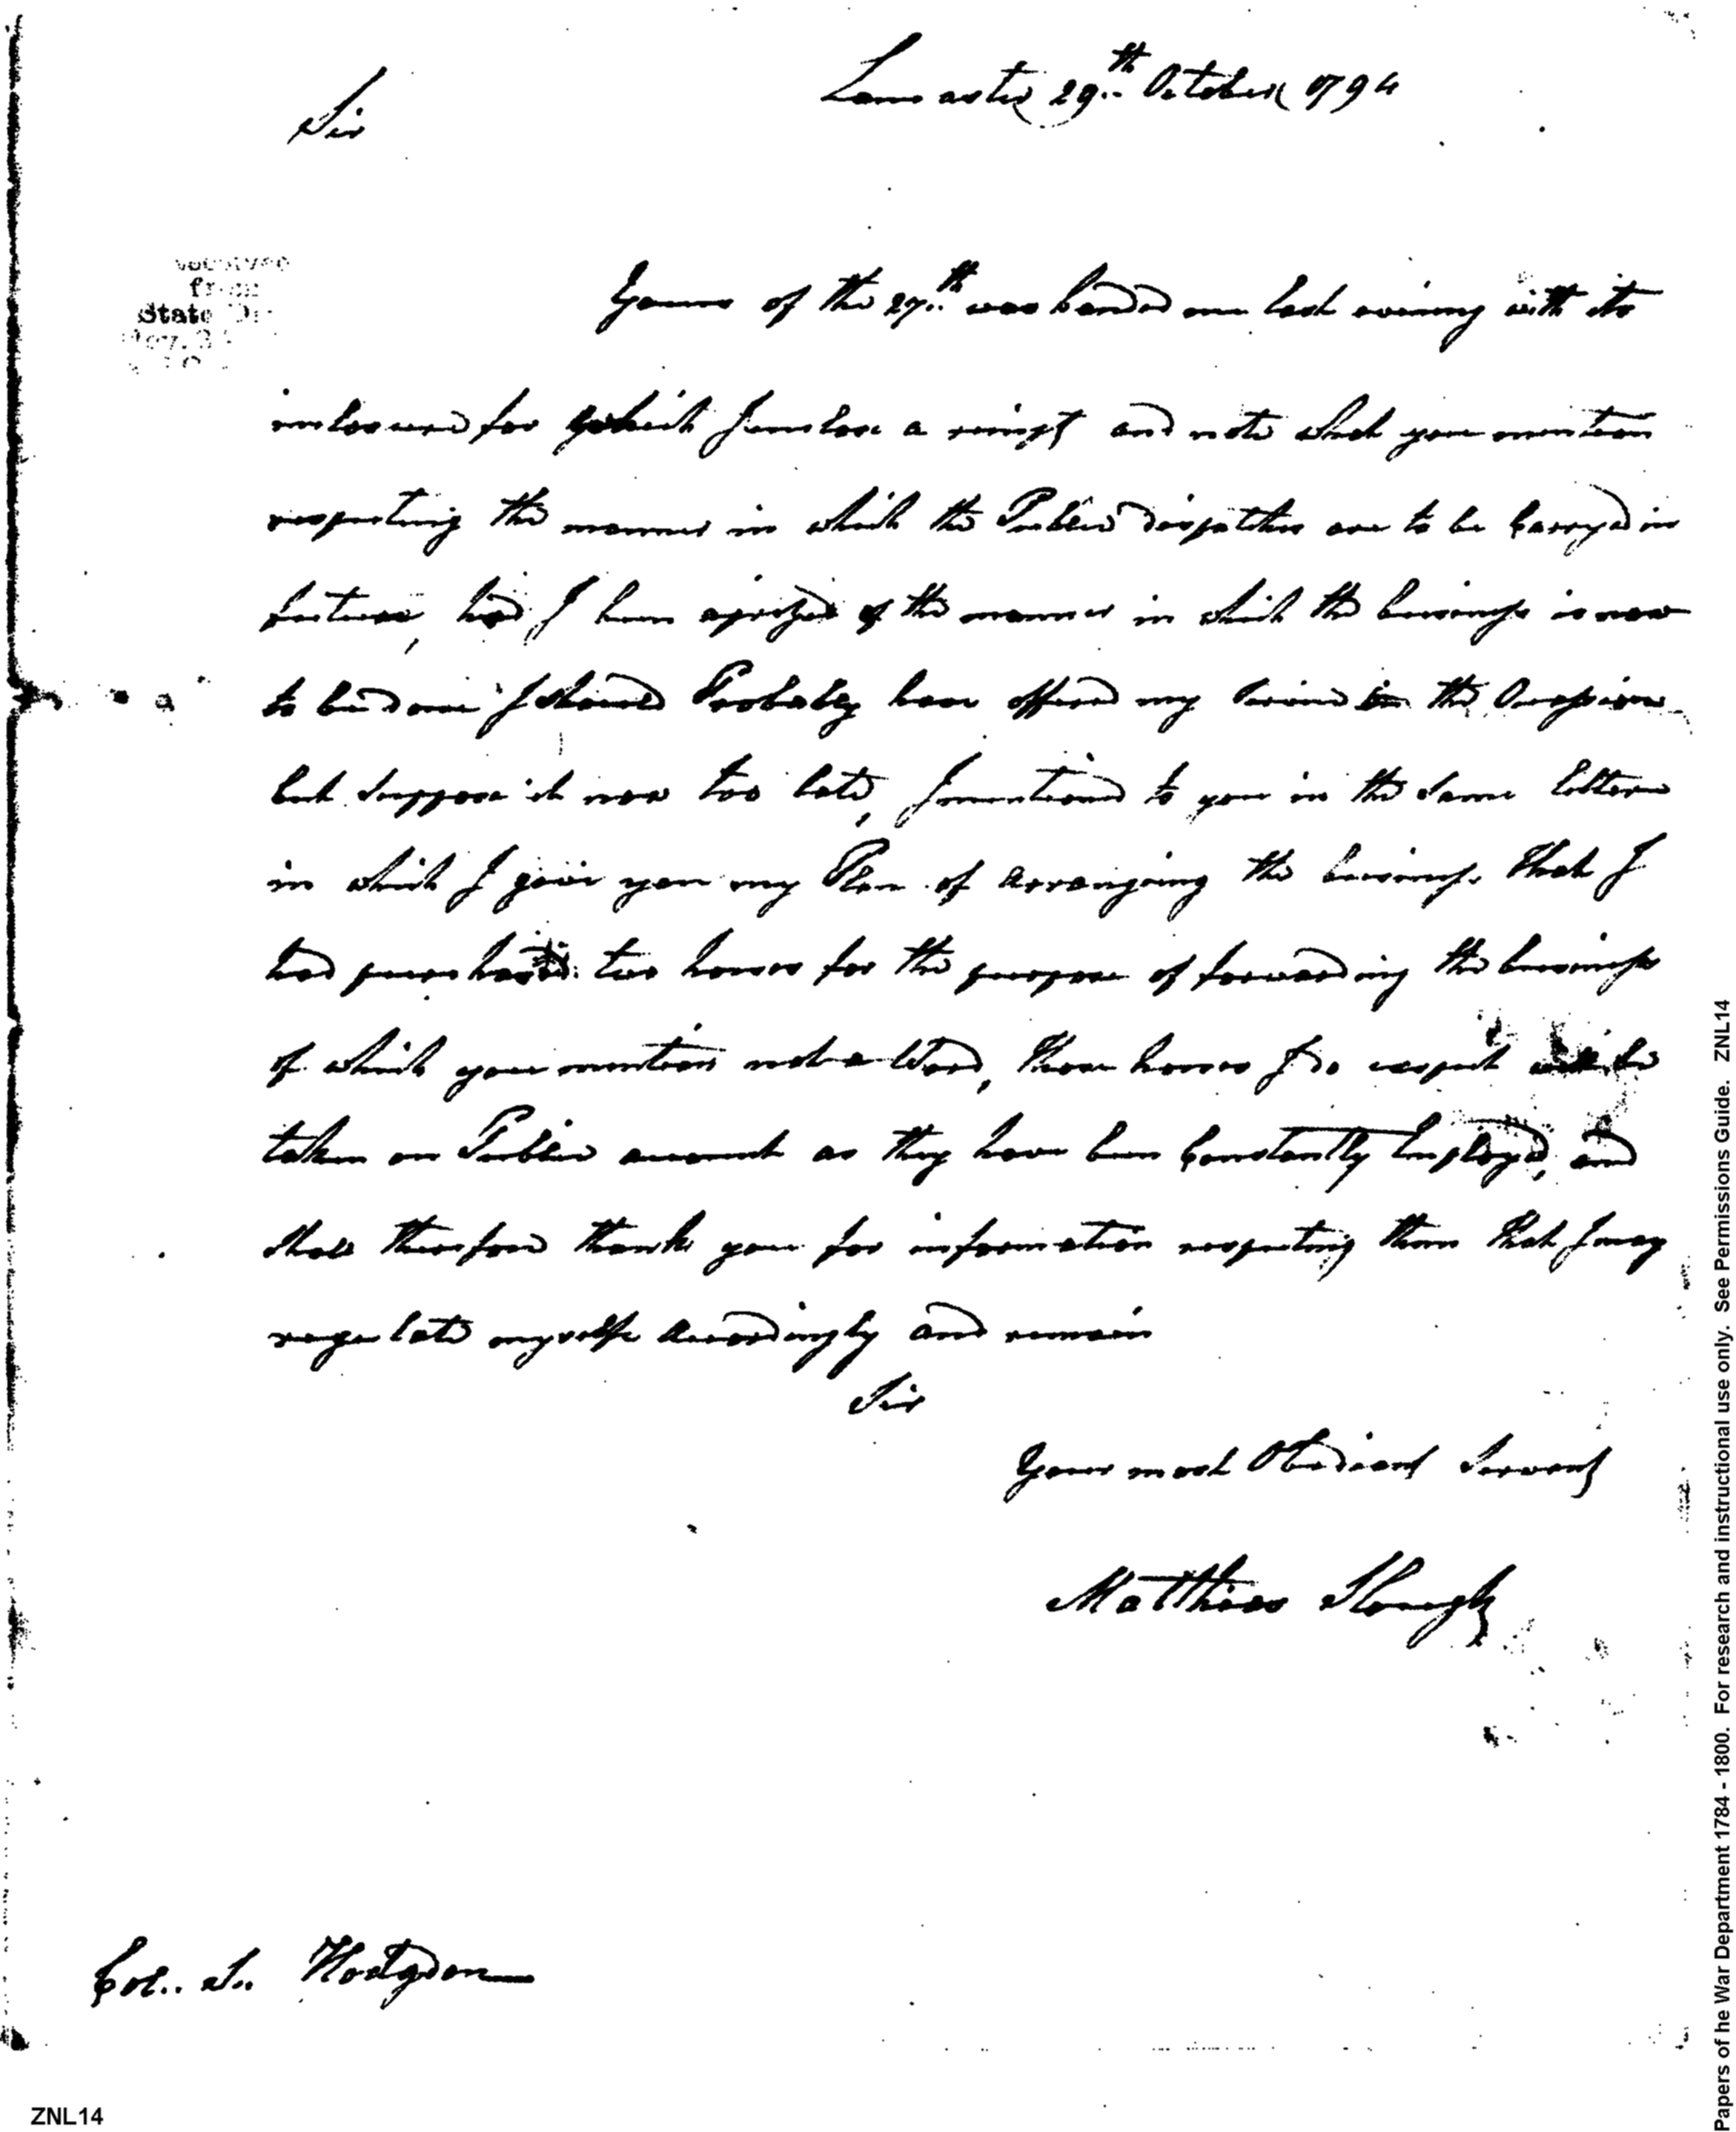 Lancaster 29th October 1794
Sir
from
State
Yours of the 27th was handed me last evening with its
inclosure for which I inclose a receipt and note what you mention
respecting the manner in which the Public dispatches are to be Carryed in
future, had I been aprized of the manner in which the business is now
to be done I should Probably have offered my Service on the Occasion
but suppose it now too late, I mentioned to you in the same letter
in which I give you my Plan of Arranging the business that I
had purchased two horses for the purpose of forwarding the business
of which you mention not a Word, those horses I do expect will be
taken on Public account as they have been Constantly Employd, and
shall therefore thank you for information respecting them that I may
regulate myselfe Accordingly and remain
Sir
Your most Obedient Servant
Matthias Slough
Col. S. Hodgdon
ZNL14
Papers of he War Department 1784 - 1800. For research and instructional use only. See Permissions Guide. ZNL14